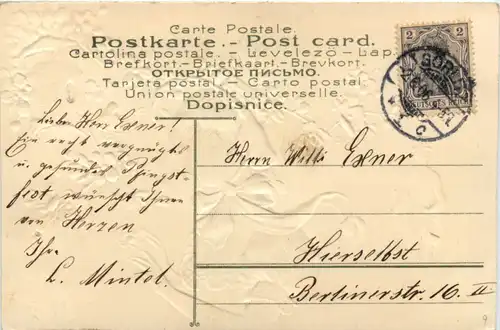 Carte Postale.
Postkarte. - Post card.
Cartolina postale. - Levelezö - Lap
Brefkort.-Briefkaart.-Brevkort.
ОТКРЫТОЕ ПИСЬМО.
Tarjeta postal - Carto postal
Union postale universelle.
Dopisnice.
2 2
GÖRLI
C
Lieber Herr Exner!
Ein recht vergnügtes
u. gesundes Pfingst-
fest wünscht Ihnen
von Herzen
Ihr
L. Mintel.
Herrn Willi Exner
Hierselbst
Berlinerstr. 16. II
9